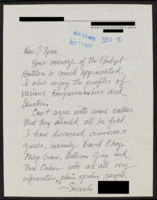 Dear C-Span
Your coverage of the Budget
Battles is much appreciated.
I also enjoy the profiles of
various Congressmen and
Senators.
Can't agree with some callers
that they should all be fired.
I have discovered
greats, namely David Obey,
Philip Crane, William Gray and
who are all very
informative, plain spoken people.
Sincerely